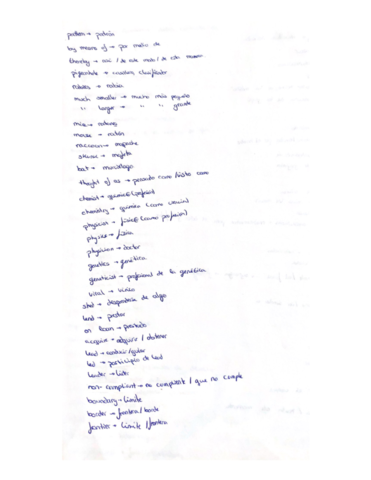 pattern → patrón
by means of → por medio de
thereby → así / de este modo / de esta manera
pigeonhole → casillero, clasificador
rabies → rabia
much smaller → mucho más pequeño
" larger → " " grande
mice → ratones
mouse → ratón
raccoon → mapache
skunk → mofeta
bat → murciélago
thought of as → pensado como / visto como
chemist → químico (profesión)
chemistry → química (como ciencia)
physicist → físico (como profesión)
physics → física
physician → doctor
genetics → genética
geneticist → profesional de la genética
viral → vírico
shed → desprenderse de algo
lend → prestar
on loan → prestado
acquire → adquirir / obtener
lead → conducir/guiar
led → participio de lead
leader → líder
non-compliant → no compliant / que no cumple
boundary → límite
border → frontera/borde
frontier → límite/frontera